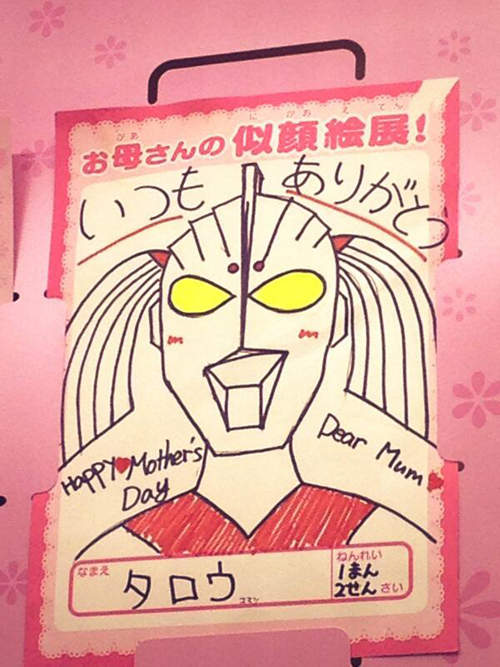 かあ に がお え てん
お母さんの似顔絵展!
いつも ありがとう
HAPPY♥Mother's
Day
Dear Mum♥
なまえ
タロウ
ねんれい
1まん
2せん さい